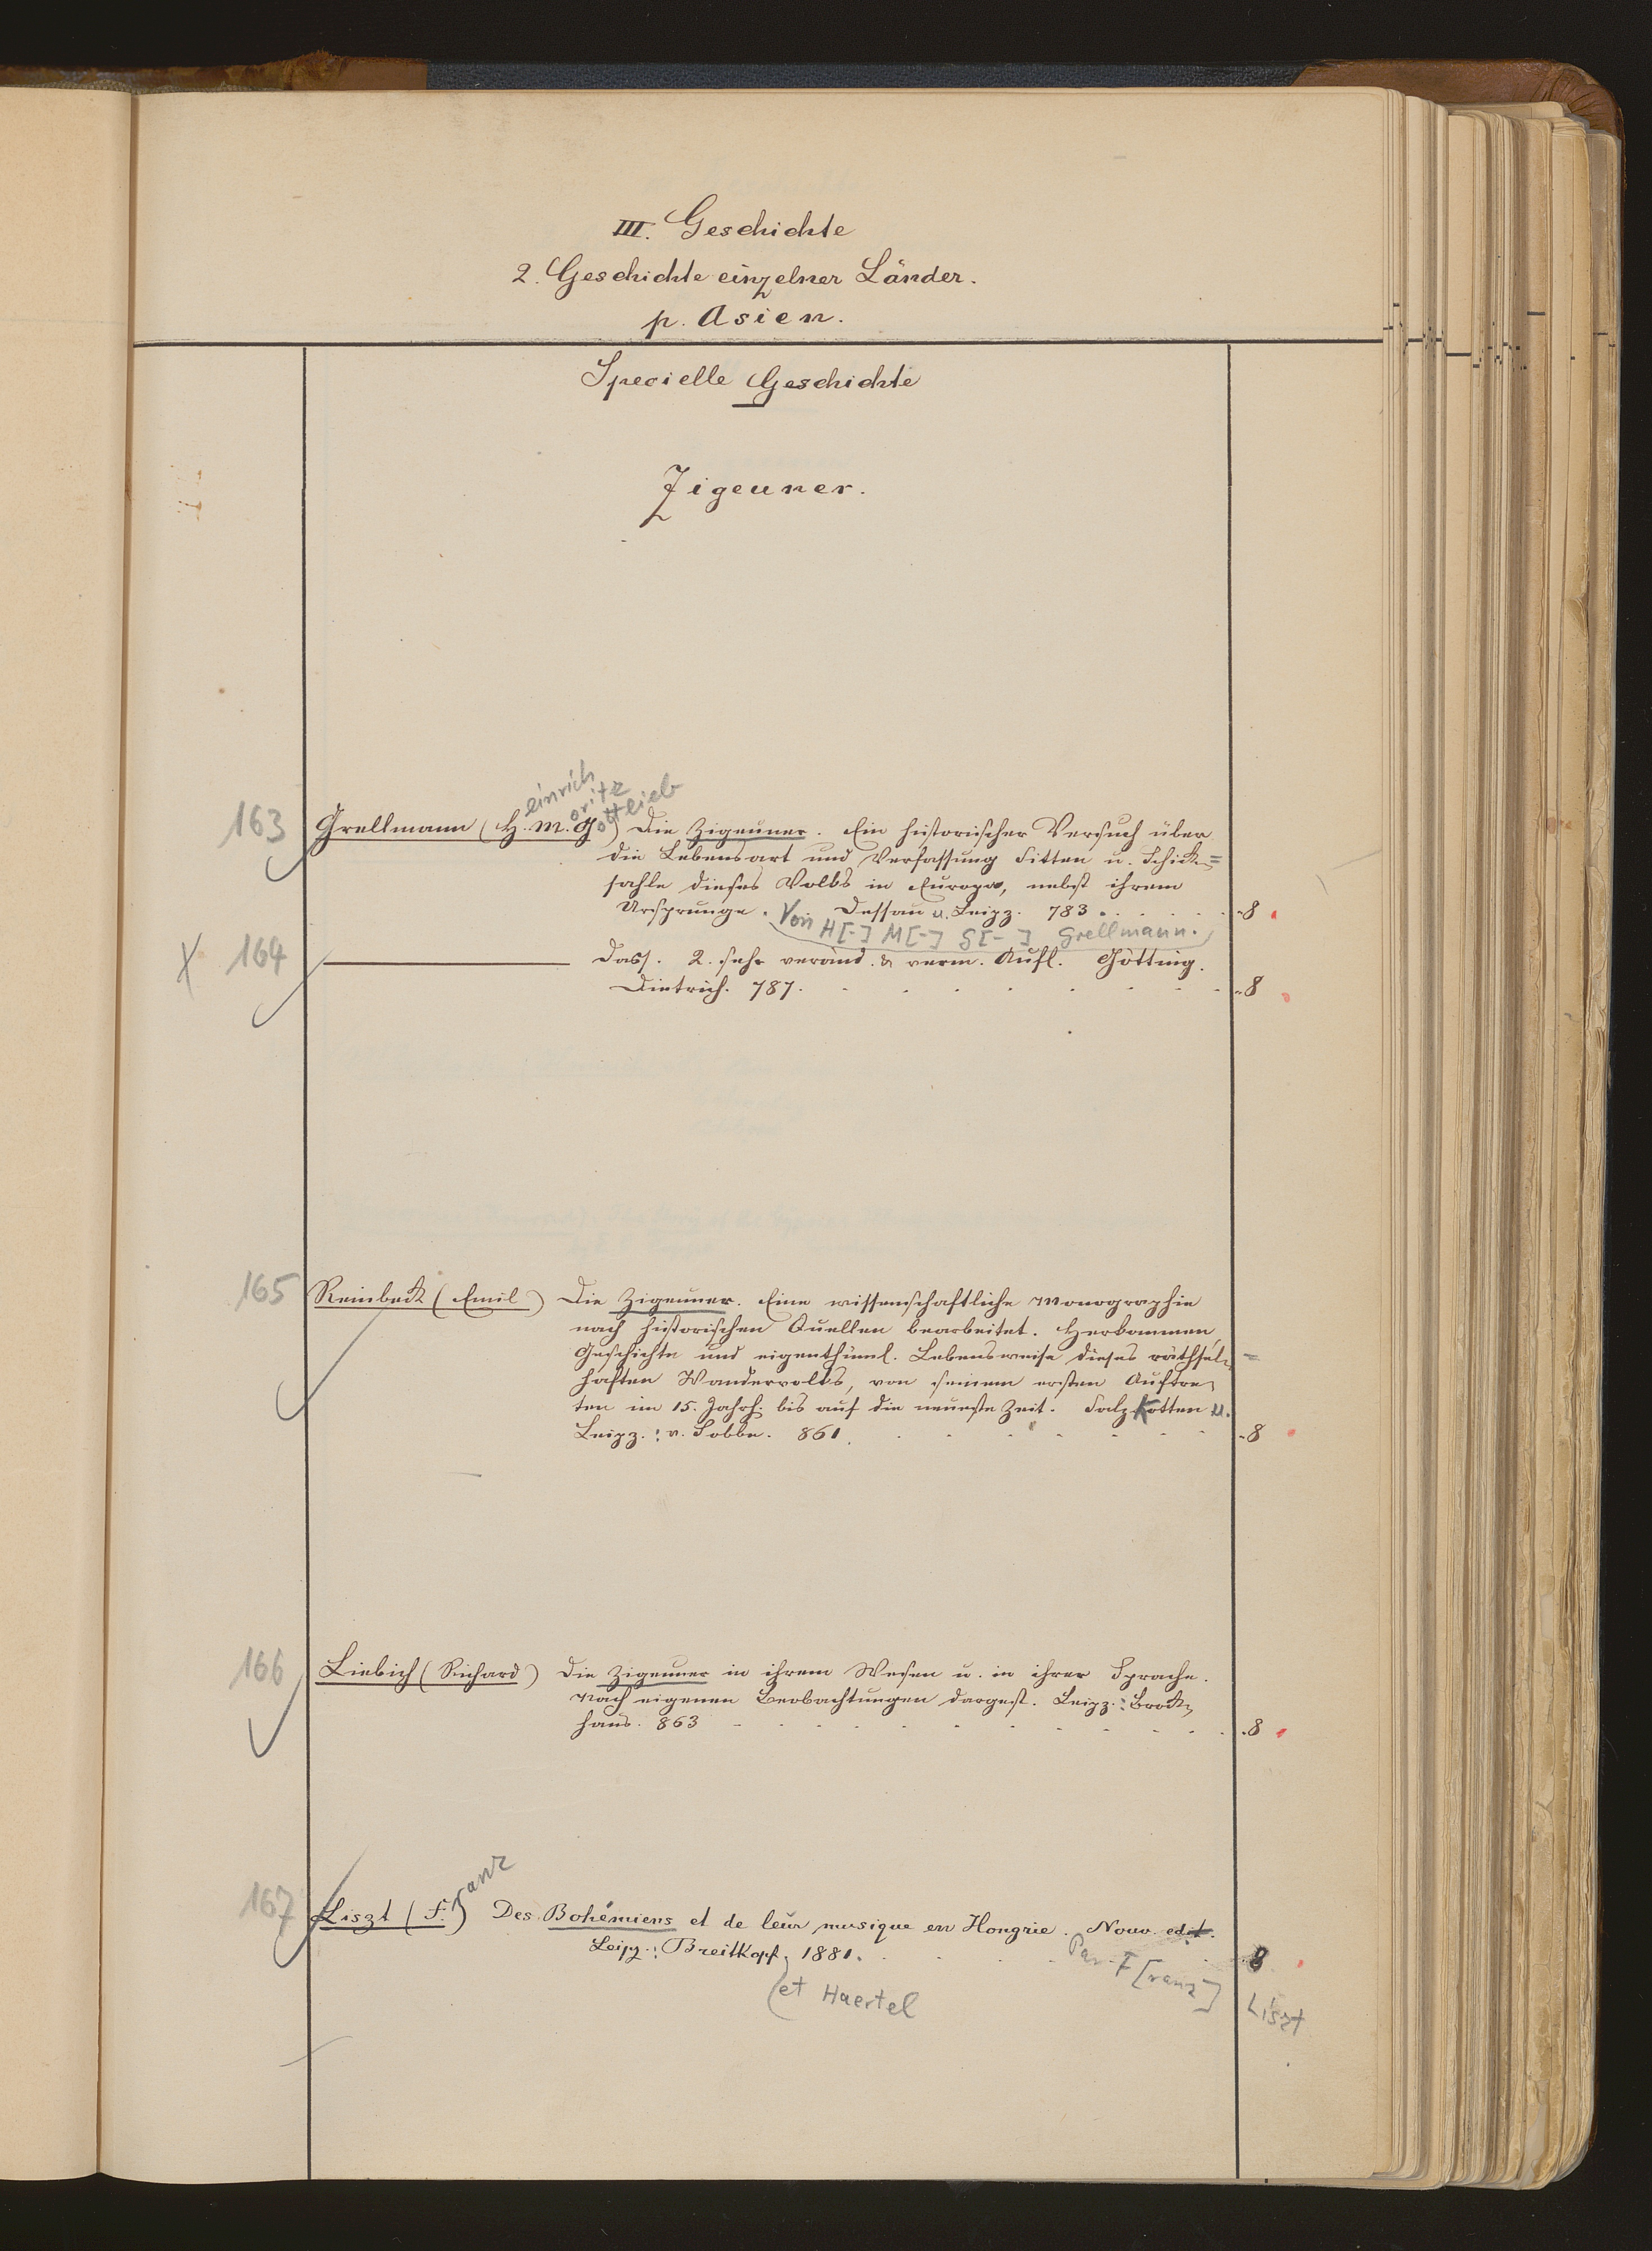 III. Geschichte
2. Geschichte einzelner Länder.
p. Asien.
Specielle Geschichte
Zigeuner.
einrich
oritz
ottlieb
163 Grellmann (H. M. G) Die Zigeuner. Ein historischer Versuch über
die Lebensart und Verfassung Sitten u. Schick=
sahle dieses Volks in Europa, nebst ihrem
Ursprunge. Dessau u. Leipz. 783. 8
Von H[-] M[-] G[-] Grellmann.
X 164 Dass. 2. sehr veränd. & verm. Aufl. Götting.
Dietrich. 787. 8
165 Reinbeck (Emil) Die Zigeuner. Eine wissenschaftliche Monographie
nach historischen Quellen bearbeitet. Herkommen,
Geschichte und eigenthüml. Lebensweise dieses räthsel=
haften Wandervolks, von seinem ersten Auftre=
ten im 15. Jahrh. bis auf die neueste Zeit. Salzkotten u.
Leipz.: v. Sobbe. 861. 8
166 Liebich (Richard) Die Zigeuner in ihrem Wesen u. in ihrer Sprache.
Nach eigenen Beobachtungen dargest. Leipz.: Brock=
haus. 863 8
ranz
167 Liszt (F.) Des Bohémiens et de leur musique en Hongrie. Nouv. edit.
Leipz.: Breitkopf, 1881. 8
Par F[ranz] Liszt
et Haertel